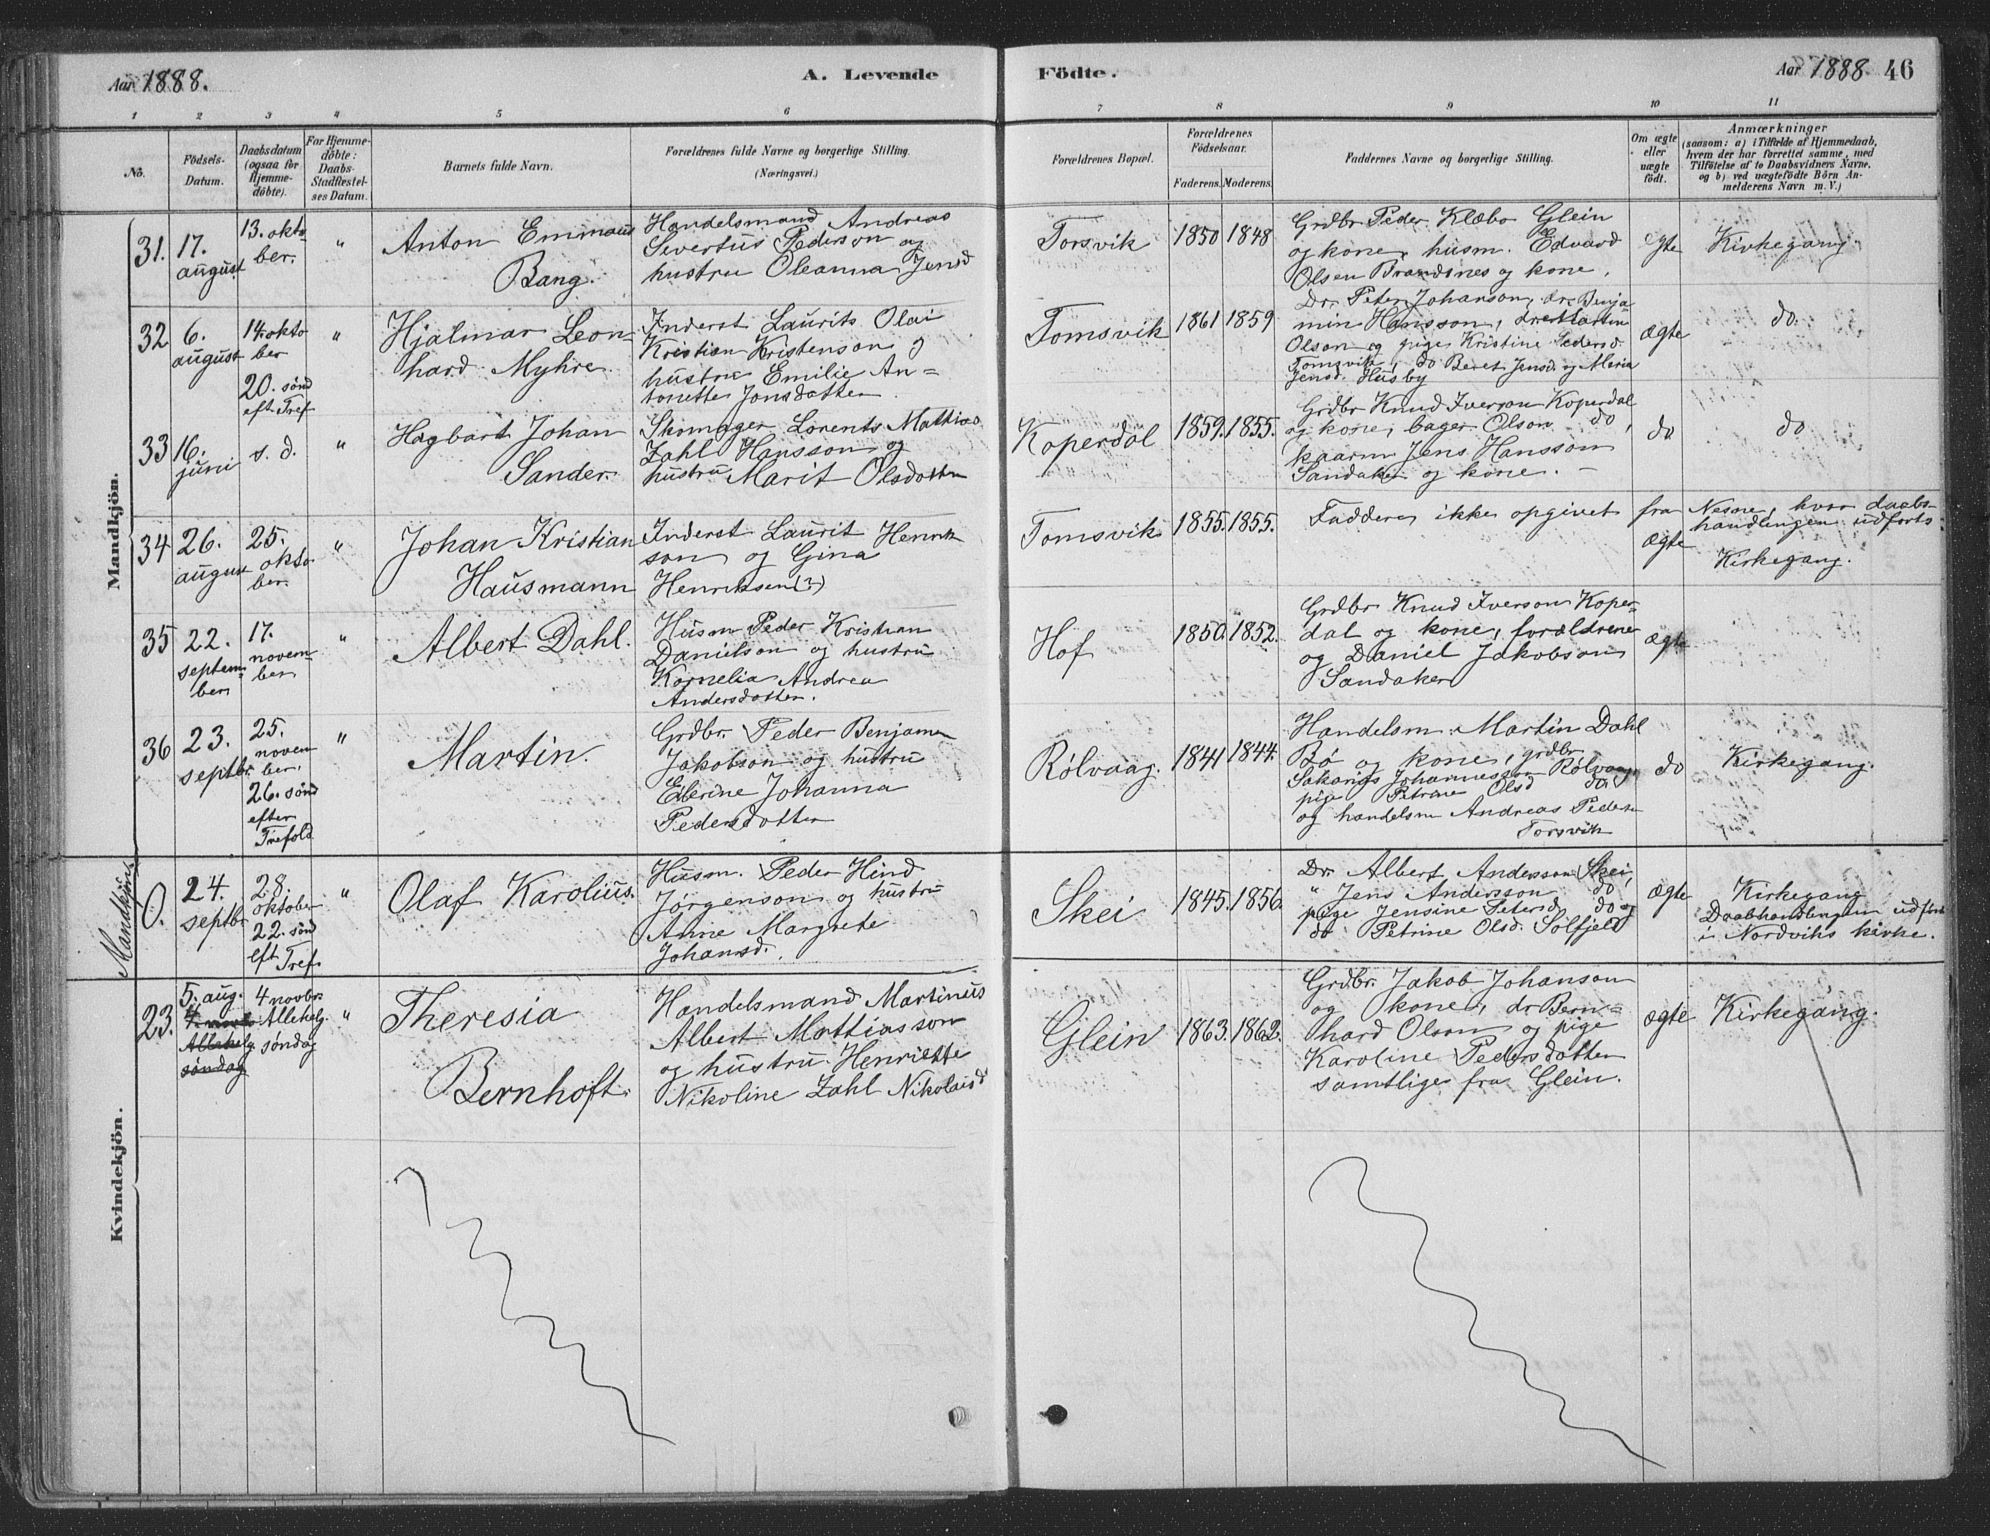 Aar 1888.
A. Levende
Födte.
Aar 1888. 46
1 2 3 4 5 6 7 8 9 10 11
No.
Födsels-
Datum.
Daabsdatum
(ogsaa for
Hjemme-
döbte).
For Hjemme-
döbte:
Daabs-
Stadfæstel-
ses Datum.
Barnets fulde Navn.
Forældrenes fulde Navne og borgerlige Stilling.
(Næringsvei.)
Forældrenes Bopæl.
Forældrenes
Födselsaar.
Faderens. Moderens.
Faddernes Navne og borgerlige Stilling.
Om ægte
eller
uægte
födt.
Anmærkninger
(saasom: a) i Tilfælde af Hjemmedaab,
hvem der har forrettet samme, med
Tilföielse af to Daabsvidners Navne,
og b) ved uægtefödte Börn An-
melderens Navn m. V.)
Mandkjön.
31.
17.
august
13. okto-
ber.
"
Anton Emmaus
Bang.
Handelsmand Andreas
Sivertus Pederson og
hustru Oleanna Jensd
Torsvik
1850
1848
Grdbr Peder Klæbo Glein
og kone, husm. Edvard
Olsen Brandsnes og kone.
egte
Kirkegang
32
6.
august
14. okto
ber
20. sønd
eft. Tref
"
Hjalmar Leon-
hard Myhre.
Inderst Laurits Olai
Kristian Kristenson og
hustru Emilie An-
tonette Jonsdatter.
Tomsvik
1861
1859
Dr. Peter Johanson, dr. Benja
min Hansson, dr Martin
Olson og pige Kristine Pedersd
Tomsvik, do Beret Jensd. og Maria
Jensd. Husby
ægte
do.
33
16.
juni
s. d.
"
Hagbart Johan
Sander.
Skomager Lorents Mathias
Zahl Hansson og
hustru Marit Olsdatter
Koperdal
1859.
1855.
Grdbr Knud Iverson Koperdal
og kone, bager Olson do,
kaarm Jens Hansson
Sandaker og kone.
do
do
34
26.
august
25.
okto
ber.
"
Johan Kristian
Hausmann
Inderst Laurit Henrik
son og Gina
Henriksen (?)
Tomsvik
1855.
1855.
Faddere ikke opgivet
fra
ægte
Nesne, hvor daabs-
handlingen udførts
Kirkegang.
35
22.
septem-
ber
17.
novem-
ber
"
Albert Dahl.
Husm Peder Kristian
Danielson og hustru
Kornelia Andrea
Andersdatter.
Hof
1850.
1852.
Grdbr Knud Iverson Koper-
dal og kone, forældrene
og Daniel Jakobson
Sandaker
ægte
36
23.
septbr.
25.
novem
ber.
26. sønd
efter
Trefold
"
Martin.
Grdbr. Peder Benjamin
Jakobson og hustru
Elerine Johanna
Pedersdotter
Rølvaag.
1841
1844.
Handelsm. Martin Dahl
Bø og kone, grdbr
Sakarias Johannesson Rølvaag
pige Petrine Olsd do,
og handelsm Andreas Peders
Torsvik
do
Kirkegang.
Mandkjøn.
0.
24.
septbr
28.
oktober
22. sønd
eft. Tref.
"
Olaf Karolius.
Husm. Peder Hind
Jørgenson og hustru
Anne Margrete
Johansd.
Skei
1845.
1856.
Dr. Albert Andersson Skei,
" Jens Andersson do,
pige Jensine Petersd. do og
do Petrine Olsd. Solfjeld
ægte
Kirkegang
Daabhandlingen udført
i Nordviks kirke.
Kvindekjön.
23.
5. aug.
søndag
4 novbr:
Allehelg.
søndag
"
Theresia
Bernhoft.
Handelsmand Martinus
Albert Mattiasson
og hustru Henriette
Nikoline Zahl Nikolaisd
Glein
1863.
1862.
Grdbr. Jakob Johanson
og kone, dr Bern-
hard Olson og pige
Karoline Pedersdatter
samtlige fra Glein.
ægte
Kirkegang.